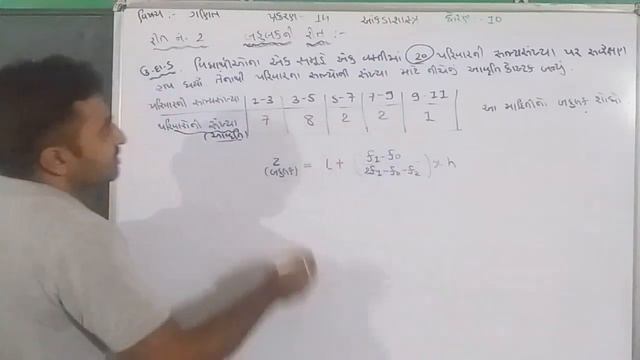 વિષય :- ગણિત પ્રકરણ - 14 આંકડાશાસ્ત્ર ધોરણ - 10
રીત નં. 2 બહુલકની રીત :-
ઉદા-5 વિદ્યાર્થીઓના એક સમૂહે એક વસ્તીમાં 20 પરિવારની સભ્યસંખ્યા પર સર્વેક્ષણ
પરિવારના સભ્યોની સંખ્યા માટે નીચેનું આવૃત્તિ કોષ્ટક બન્યું.
પરિવારની સભ્યસંખ્યા 2-3 3-5 5-7 7-9 9-11
આ માહિતીનો બહુલક શોધો.
પરિવારોની સંખ્યા 7 8 2 2 1
(આવૃત્તિ)
Z = l + (f₁-f₀ / 2f₁-f₀-f₂) × h
(બહુલક)